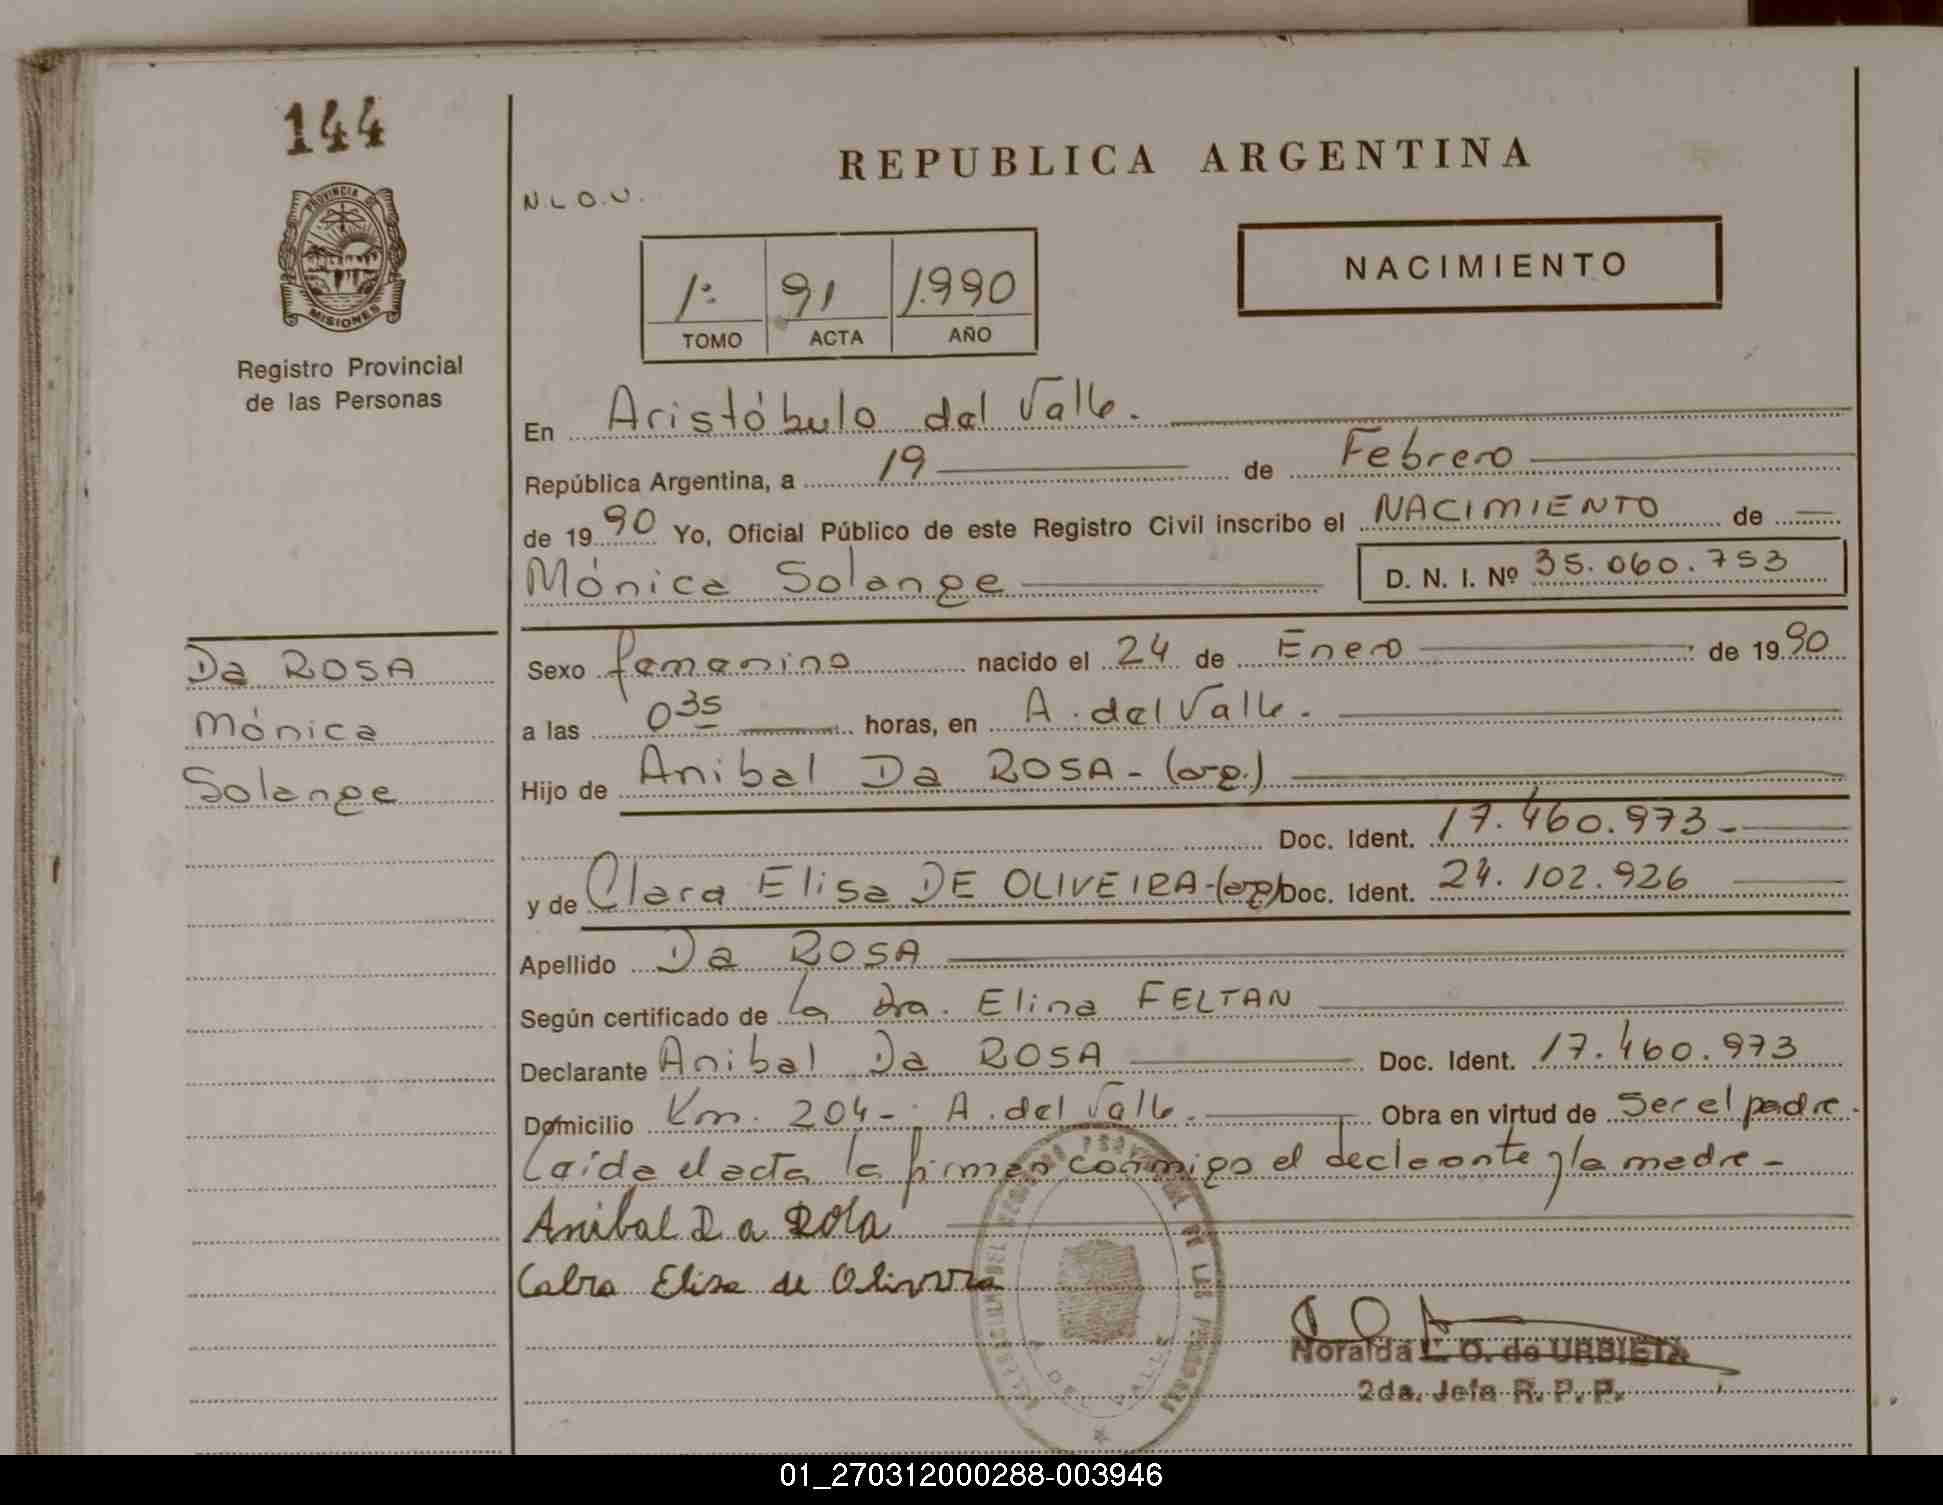 144
PROVINCIA DE
MISIONES
Registro Provincial
de las Personas
REPUBLICA ARGENTINA
N.L.O.U.
NACIMIENTO
1º 91 1990
TOMO ACTA AÑO
En Aristóbulo del Valle.
República Argentina, a 19 de Febrero
de 1990 Yo, Oficial Público de este Registro Civil inscribo el NACIMIENTO de
Mónica Solange D. N. I. Nº 35.060.753
Da ROSA
Mónica
Solange
Sexo femenino nacido el 24 de Enero de 1990
a las 0 35 horas, en A. del Valle.
Hijo de Anibal Da ROSA - (arg.)
Doc. Ident. 17.460.973-
y de Clara Elisa DE OLIVEIRA-(arg) Doc. Ident. 24.102.926
Apellido Da ROSA
Según certificado de la Dra. Elina FELTAN
Declarante Anibal Da ROSA Doc. Ident. 17.460.973
Domicilio Km. 204-. A. del Valle. Obra en virtud de Ser el padre.
Leída el acta la firman conmigo el declarante y la madre-
Anibal Da Rosa
Calra Elisa de Oliveira
DEL VALLE
Noralda L. O. de URBIETA
2da. Jefa R. P. P.
01_270312000288-003946